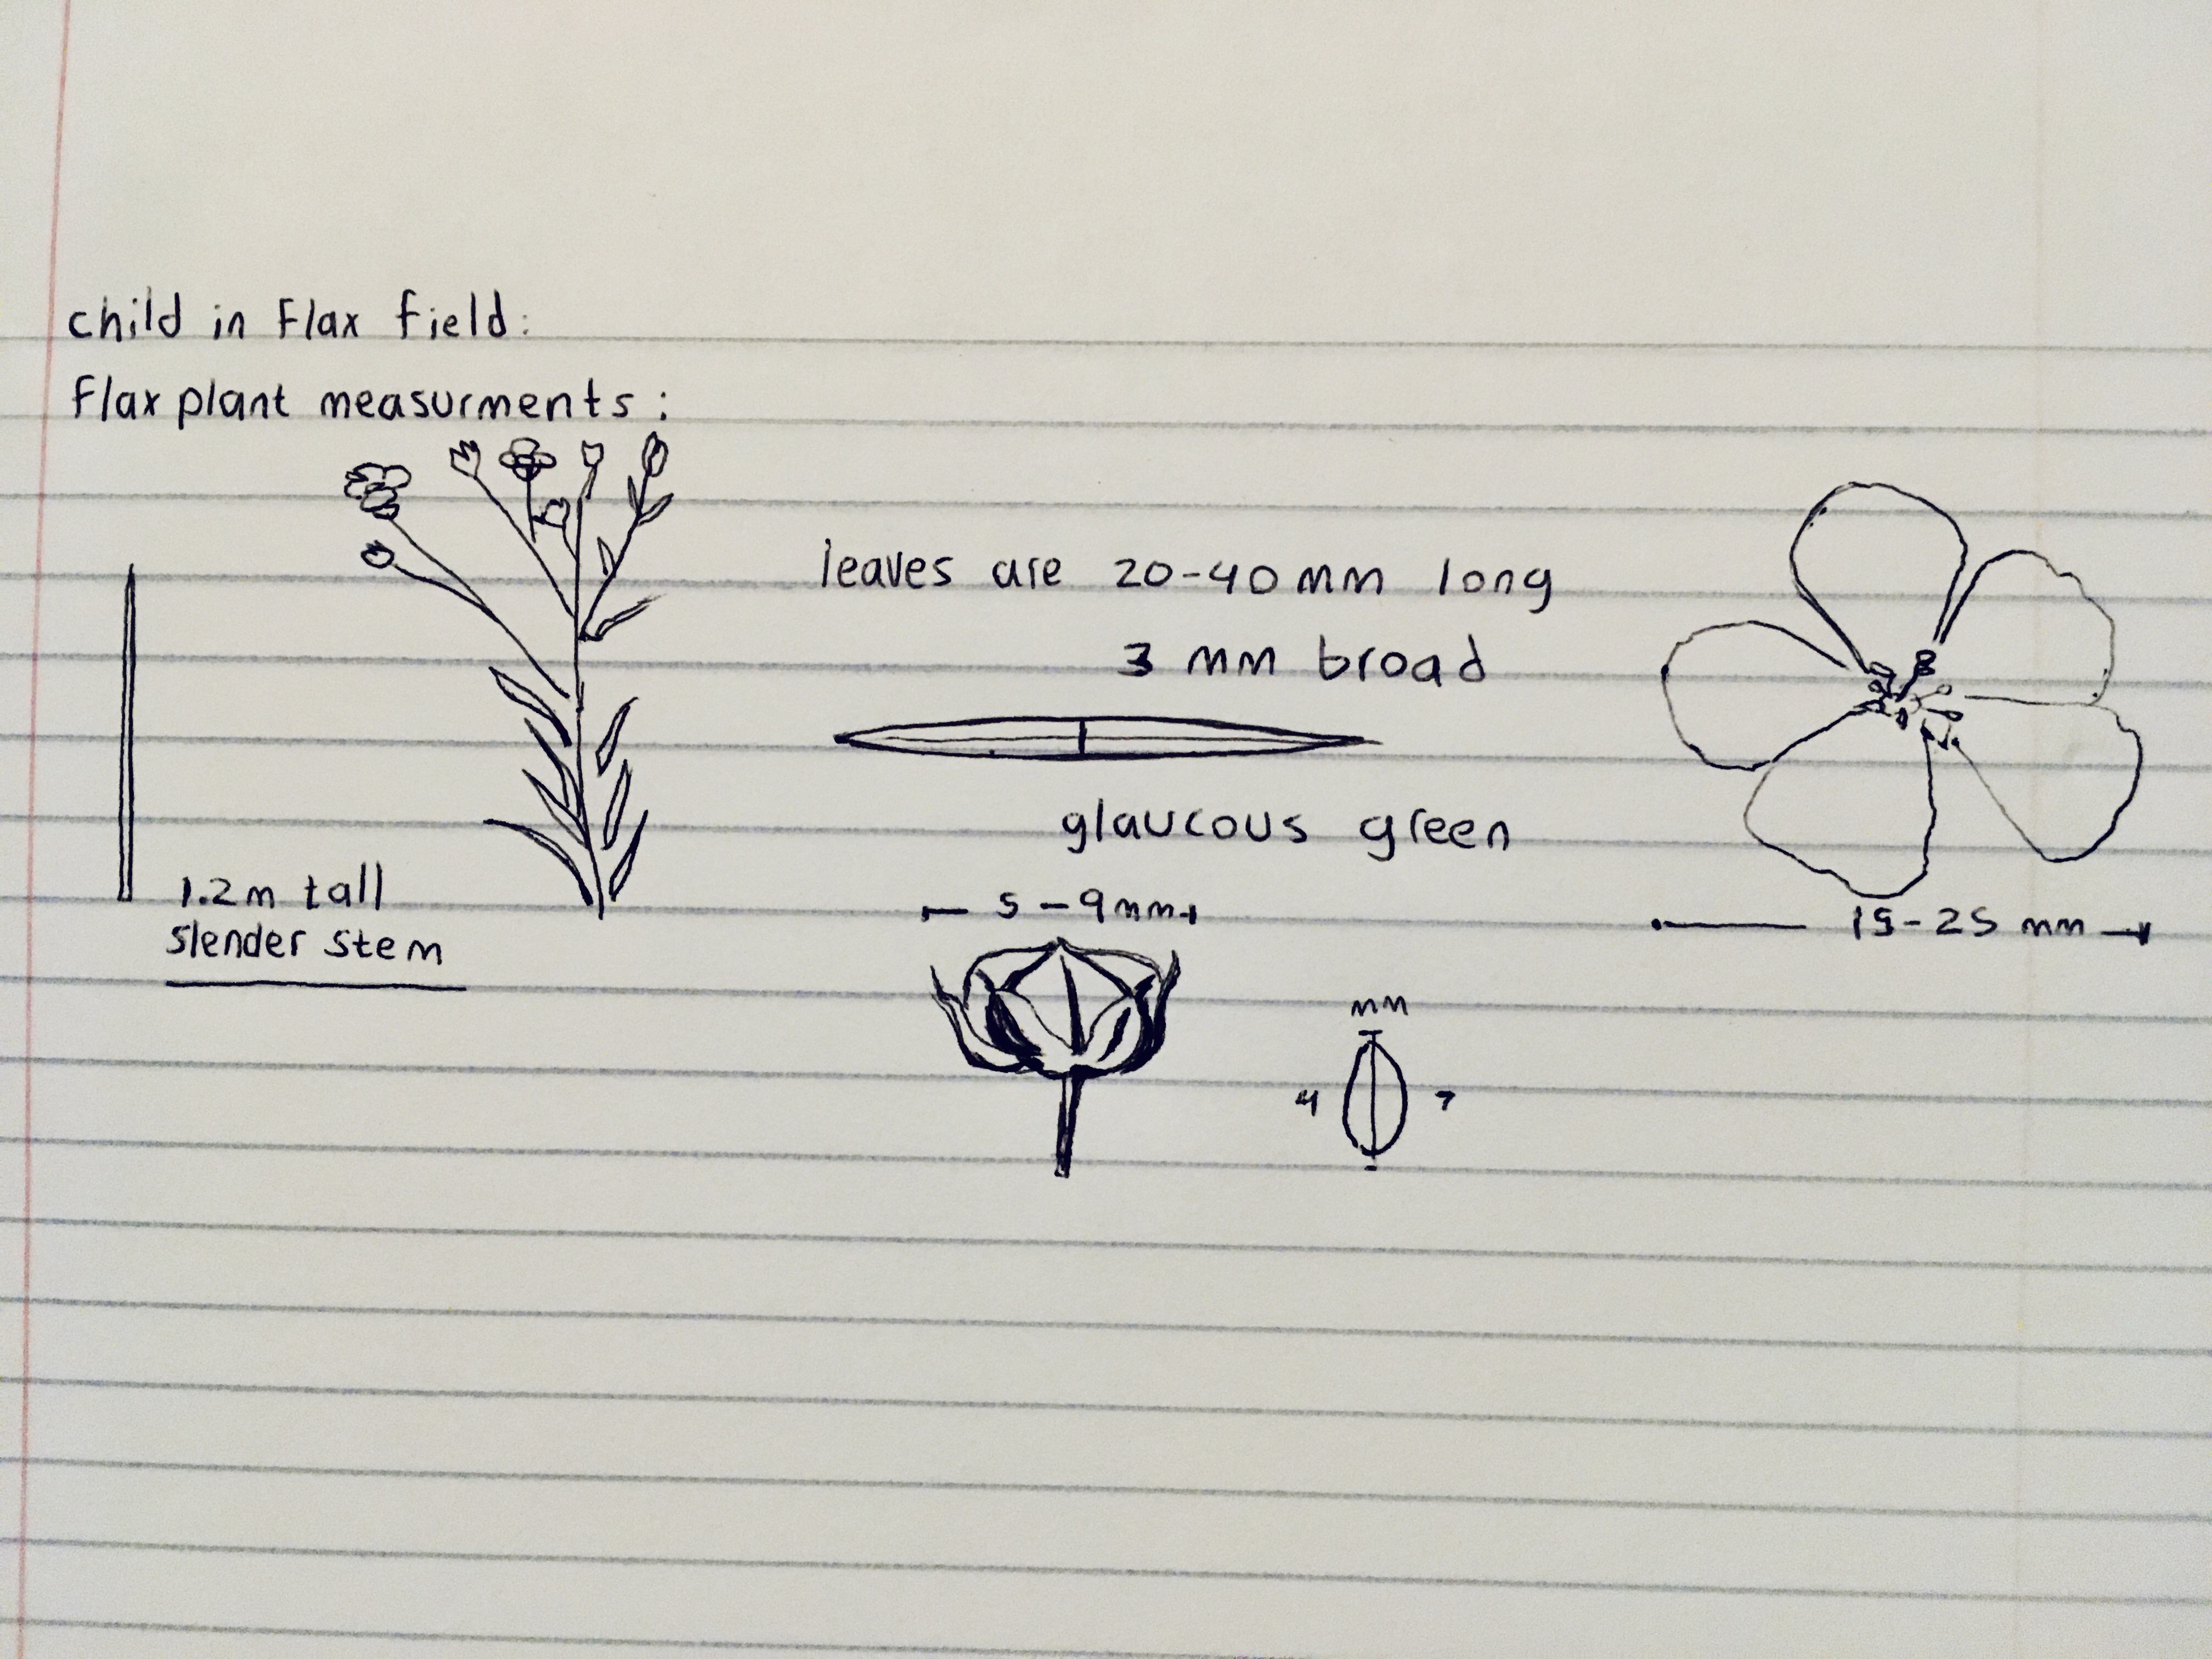 child in Flax field:
Flax plant measurments:
leaves are 20-40mm long
3 mm broad
glaucous green
1.2m tall
slender stem
5-9mm
15-25 mm
mm
4 7